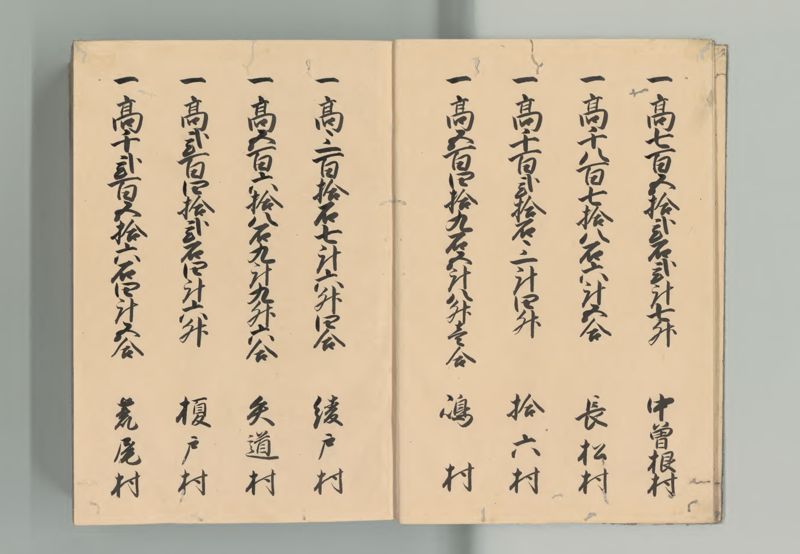 一高七百五拾弐石弐斗七升 中曽根村
一高千八百七拾八石六斗五合 長松村
一高千百弐拾石三斗四升 拾六村
一高五百四拾九石五斗八升壱合 嶋村
一高三百拾石七斗六升四合 綾戸村
一高五百六拾八石九斗九升六合 矢道村
一高弐百四拾弐石四斗六升 榎戸村
一高千弐百五拾六石四斗五合 荒尾村